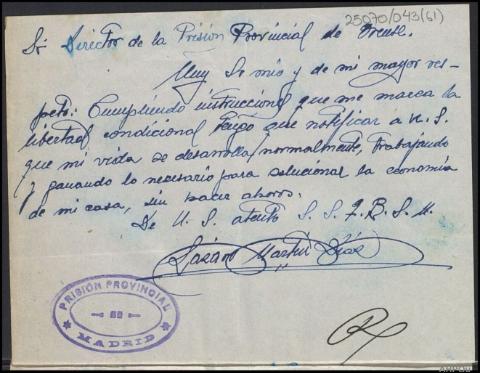 25070/043(61)
Sr Director de la Prisión Provincial de Orense.
Muy Sr mio y de mi mayor res-
peto: Cumpliendo instruccional que me marca la
libertad condicional tengo que notificar a U. S.
que mi vida se desarrolla normalmente, trabajando
y ganando lo necesario para solucional la economia
de mi casa, sin hacer ahorro.
De U. S. atento S. S. Q. B. S. M.
Martin Dias
PRISIÓN PROVINCIAL
MADRID